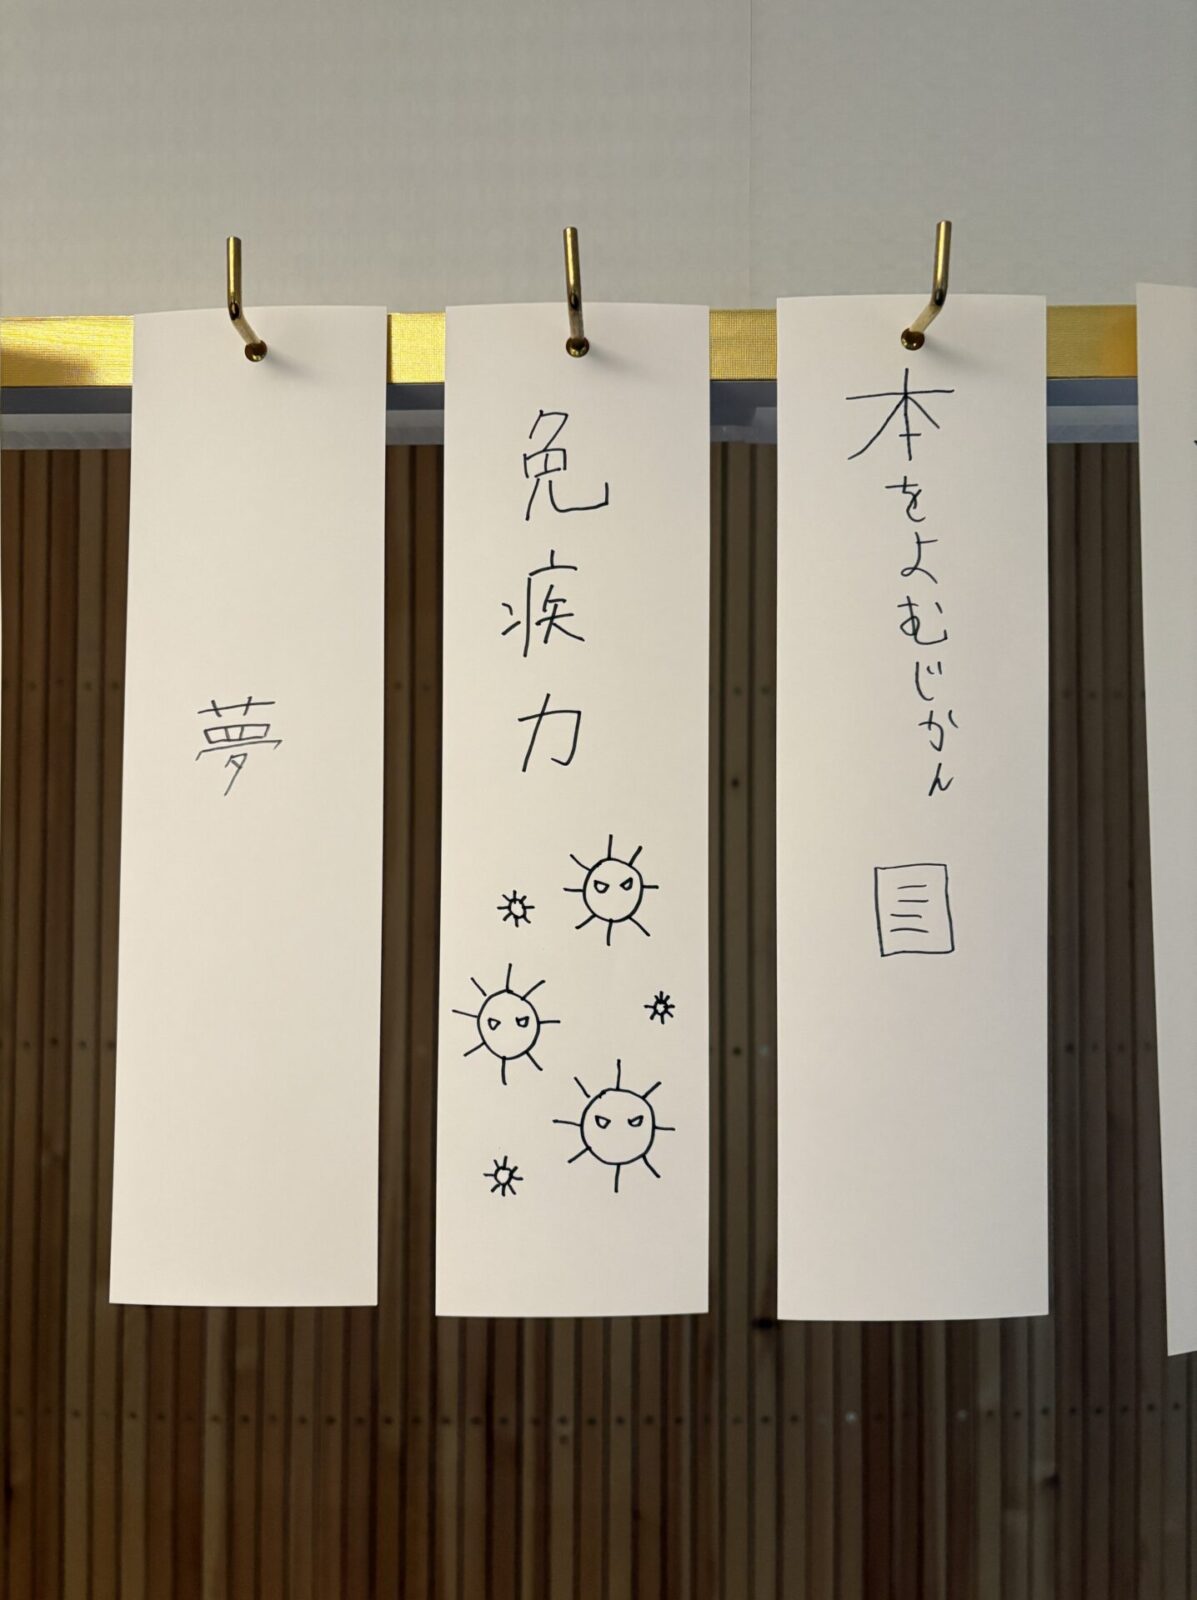 本をよむじかん
免疾力
夢